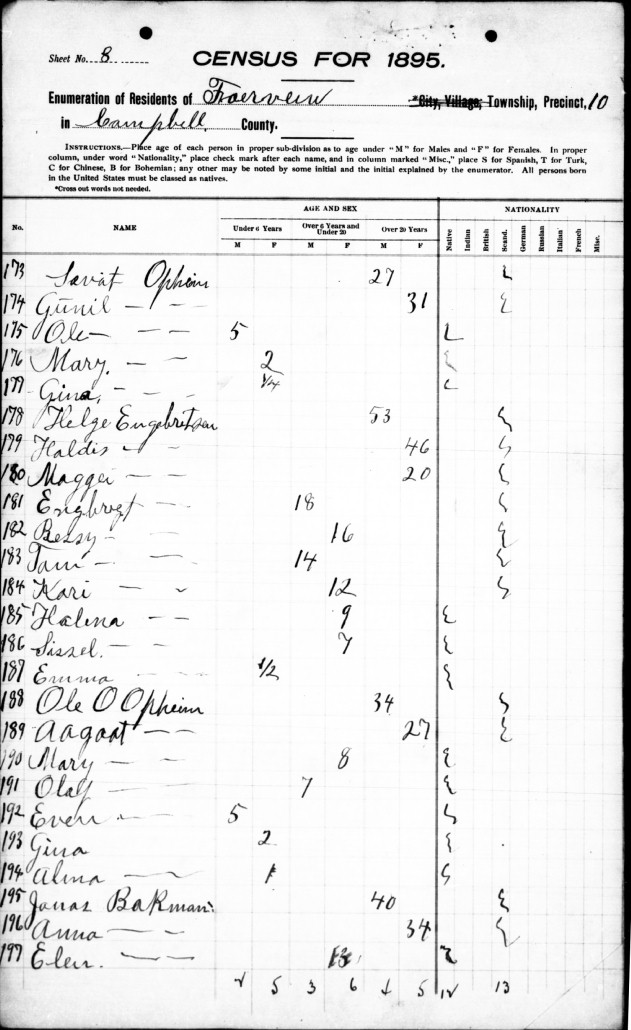 Sheet No. 8
CENSUS FOR 1895.
Enumeration of Residents of *City, Village, Township, Precinct, 10
in Campbell, County.
INSTRUCTIONS.—Place age of each person in proper sub-division as to age under "M" for Males and "F" for Females. In proper
column, under word "Nationality," place check mark after each name, and in column marked "Misc.," place S for Spanish, T for Turk,
C for Chinese, B for Bohemian; any otner may be noted by some initial and the initial explained by the enumerator. All persons born
in the United States must be classed as natives.
*Cross out words not needed.
AGE AND SEX NATIONALITY
No. NAME Under 6 Years Over 6 Years and Under 20 Over 20 Years Native Indian British Scand. German Russian Italian French Misc.
M F M F M F
173 Opheim 27
174 Gunil — — 31
175 Ole — — 5
176 Mary, — — 2
177 Gina, — — 1/4
178 Helge Engebritsen 53
179 Haldis — 46
180 Maggei — — 20
181 — — 18
182 Bessy — — 16
183 — — 14
184 Kari — 12
185 Halena — — 9
186 Sissel. — — 7
187 Emma — — 1/2
188 Ole O Opheim 34
189 Aagaat — — 27
190 Mary — — 8
191 Olaf — — 7
192 Even — — 5
193 Gina 2
194 Alma — 1
195 Jonas Bakman 40
196 Anna — — 34
197 Elen. — — 13
5 3 6 5 12 13